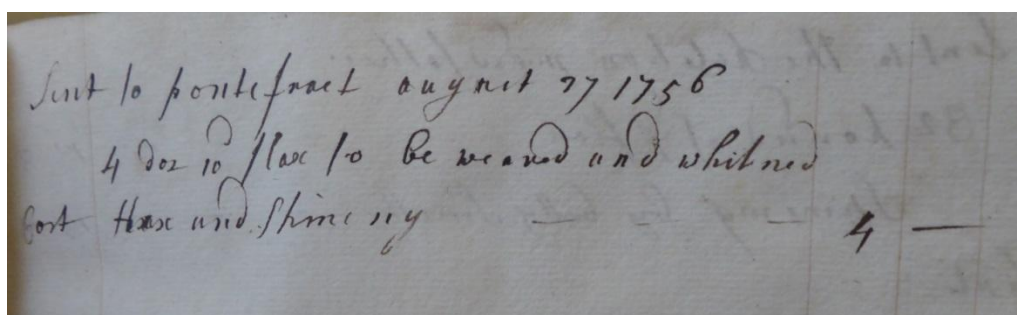 Sent to pontefract august 27 1756
4 doz 10 flax to be weaved and whitned
Cost flax and Spineng — — 4 —